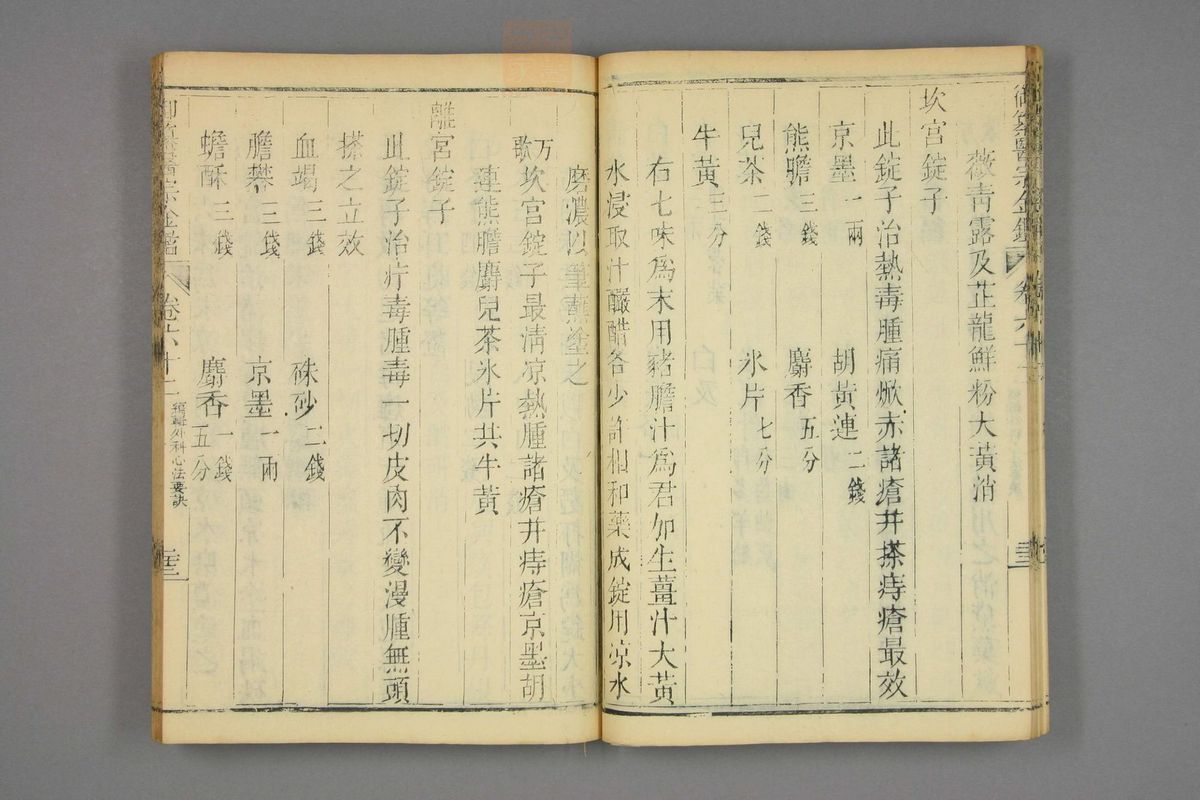 御纂醫宗金鑑 卷六十二
薇靑露及芷龍鮮粉大黃消
坎宫錠子
此錠子治熱毒腫痛焮赤諸瘡并搽痔瘡最效
京墨一兩 胡黃連二錢
熊膽三錢 麝香五分
兒茶二錢 氷片七分
牛黃三分
右七味爲末用豬膽汁爲君加生薑汁大黃
水浸取汁釅醋各少許相和藥成錠用凉水
磨濃以筆蘸塗之
方歌 坎宫錠子最淸凉熱腫諸瘡并痔瘡京墨胡
連熊膽麝兒茶氷片共牛黃
離宮錠子
此錠子治疔毒腫毒一切皮肉不變漫腫無頭
搽之立效
血竭三錢 硃砂二錢
膽礬三錢 京墨一兩
蟾酥三錢 麝香一錢五分
御纂醫宗金鑑 卷六十二 編輯外科心法要訣